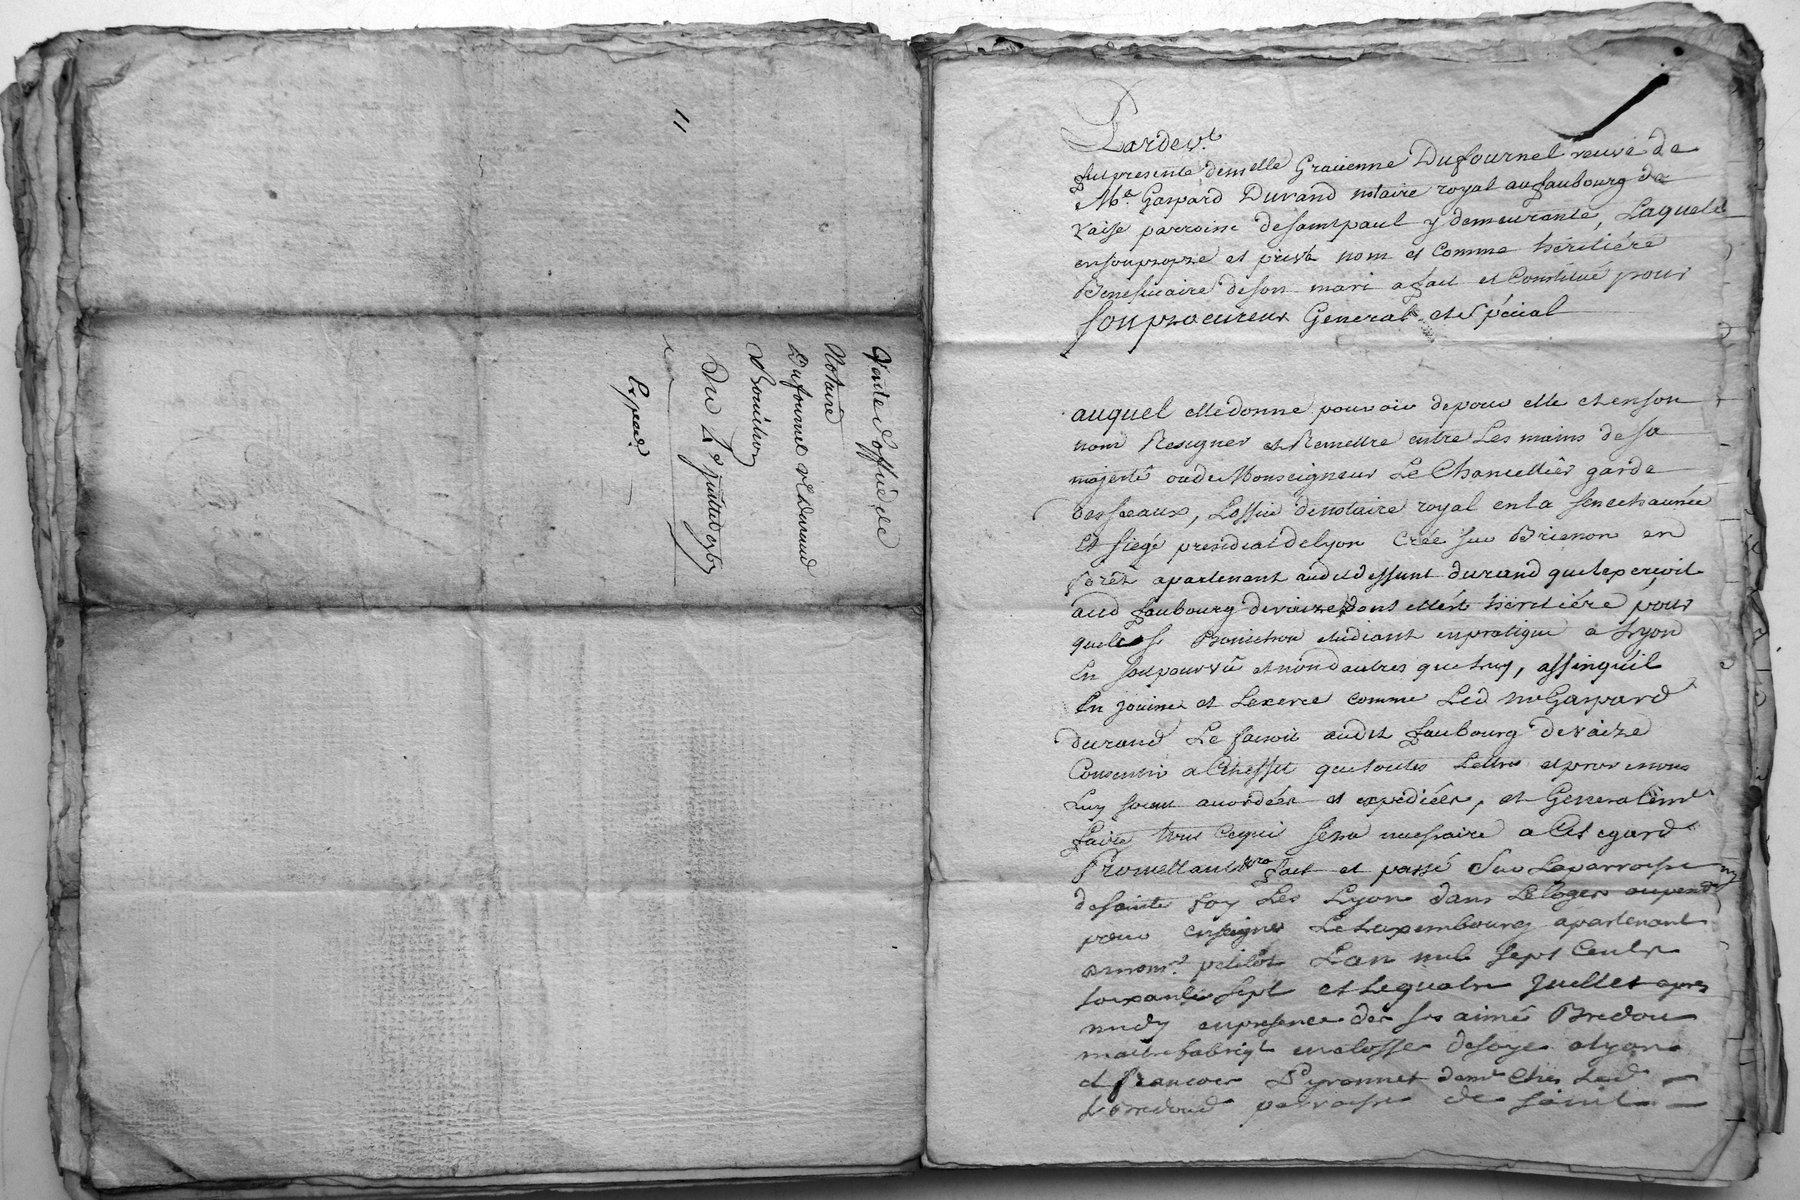 11
Vente d'office de
Notaire
Dufournel vve Durand
Bonichon
Du 4e juillet 1767
Expédé
Pardevt
fut presente demelle Dufournel veuve de
Me Gaspard Durand notaire royal au faubourg de
Vaise parroisse de saint paul y demeurante, Laquelle
en son propre et privé nom et comme héritiére
Beneficiaire de son mari a fait et Constitué pour
son procureur General et Spécial
auquel elle donne pouvoir de pour elle et en son
nom Resigner et Remettre entre Les mains de sa
majesté ou de Monseigneur Le Chancellier garde
des sceaux, L'office de notaire royal en la senechaussée
et siege presidial de lyon Créé sur Brienon en
forêt apartenant audit deffunt durand quil exercoit
aud faubourg de vaize dont elle est héritiére pour
que le sr Bonichon etudiant en pratique a Lyon
En soit pourvû et non d'autres que luy, affin quil
En jouisse et Lexerce comme Led me Gaspard
durand Le faisoit audit faubourg de vaize
Consentir a Cet effet que toutes Lettres et provisions
Luy soient accordées et expediées, et Generalemt
faire tout Ce qui sera necessaire a Cet egard
Promettant fait et passé Sur La parroisse
de sainte foy Les Lyon dans Le Logis
pour enseigne Le Luxembourg apartenant
petitot L'an mil sept Cents
soixante sept et Le quatre Juillet apres
midy en presence des srs aimé Bredou
maitre fabriqt en etoffes de soye a lyon
et francois Peyronnet demt Ches Led
Bredoud parroisse de saint